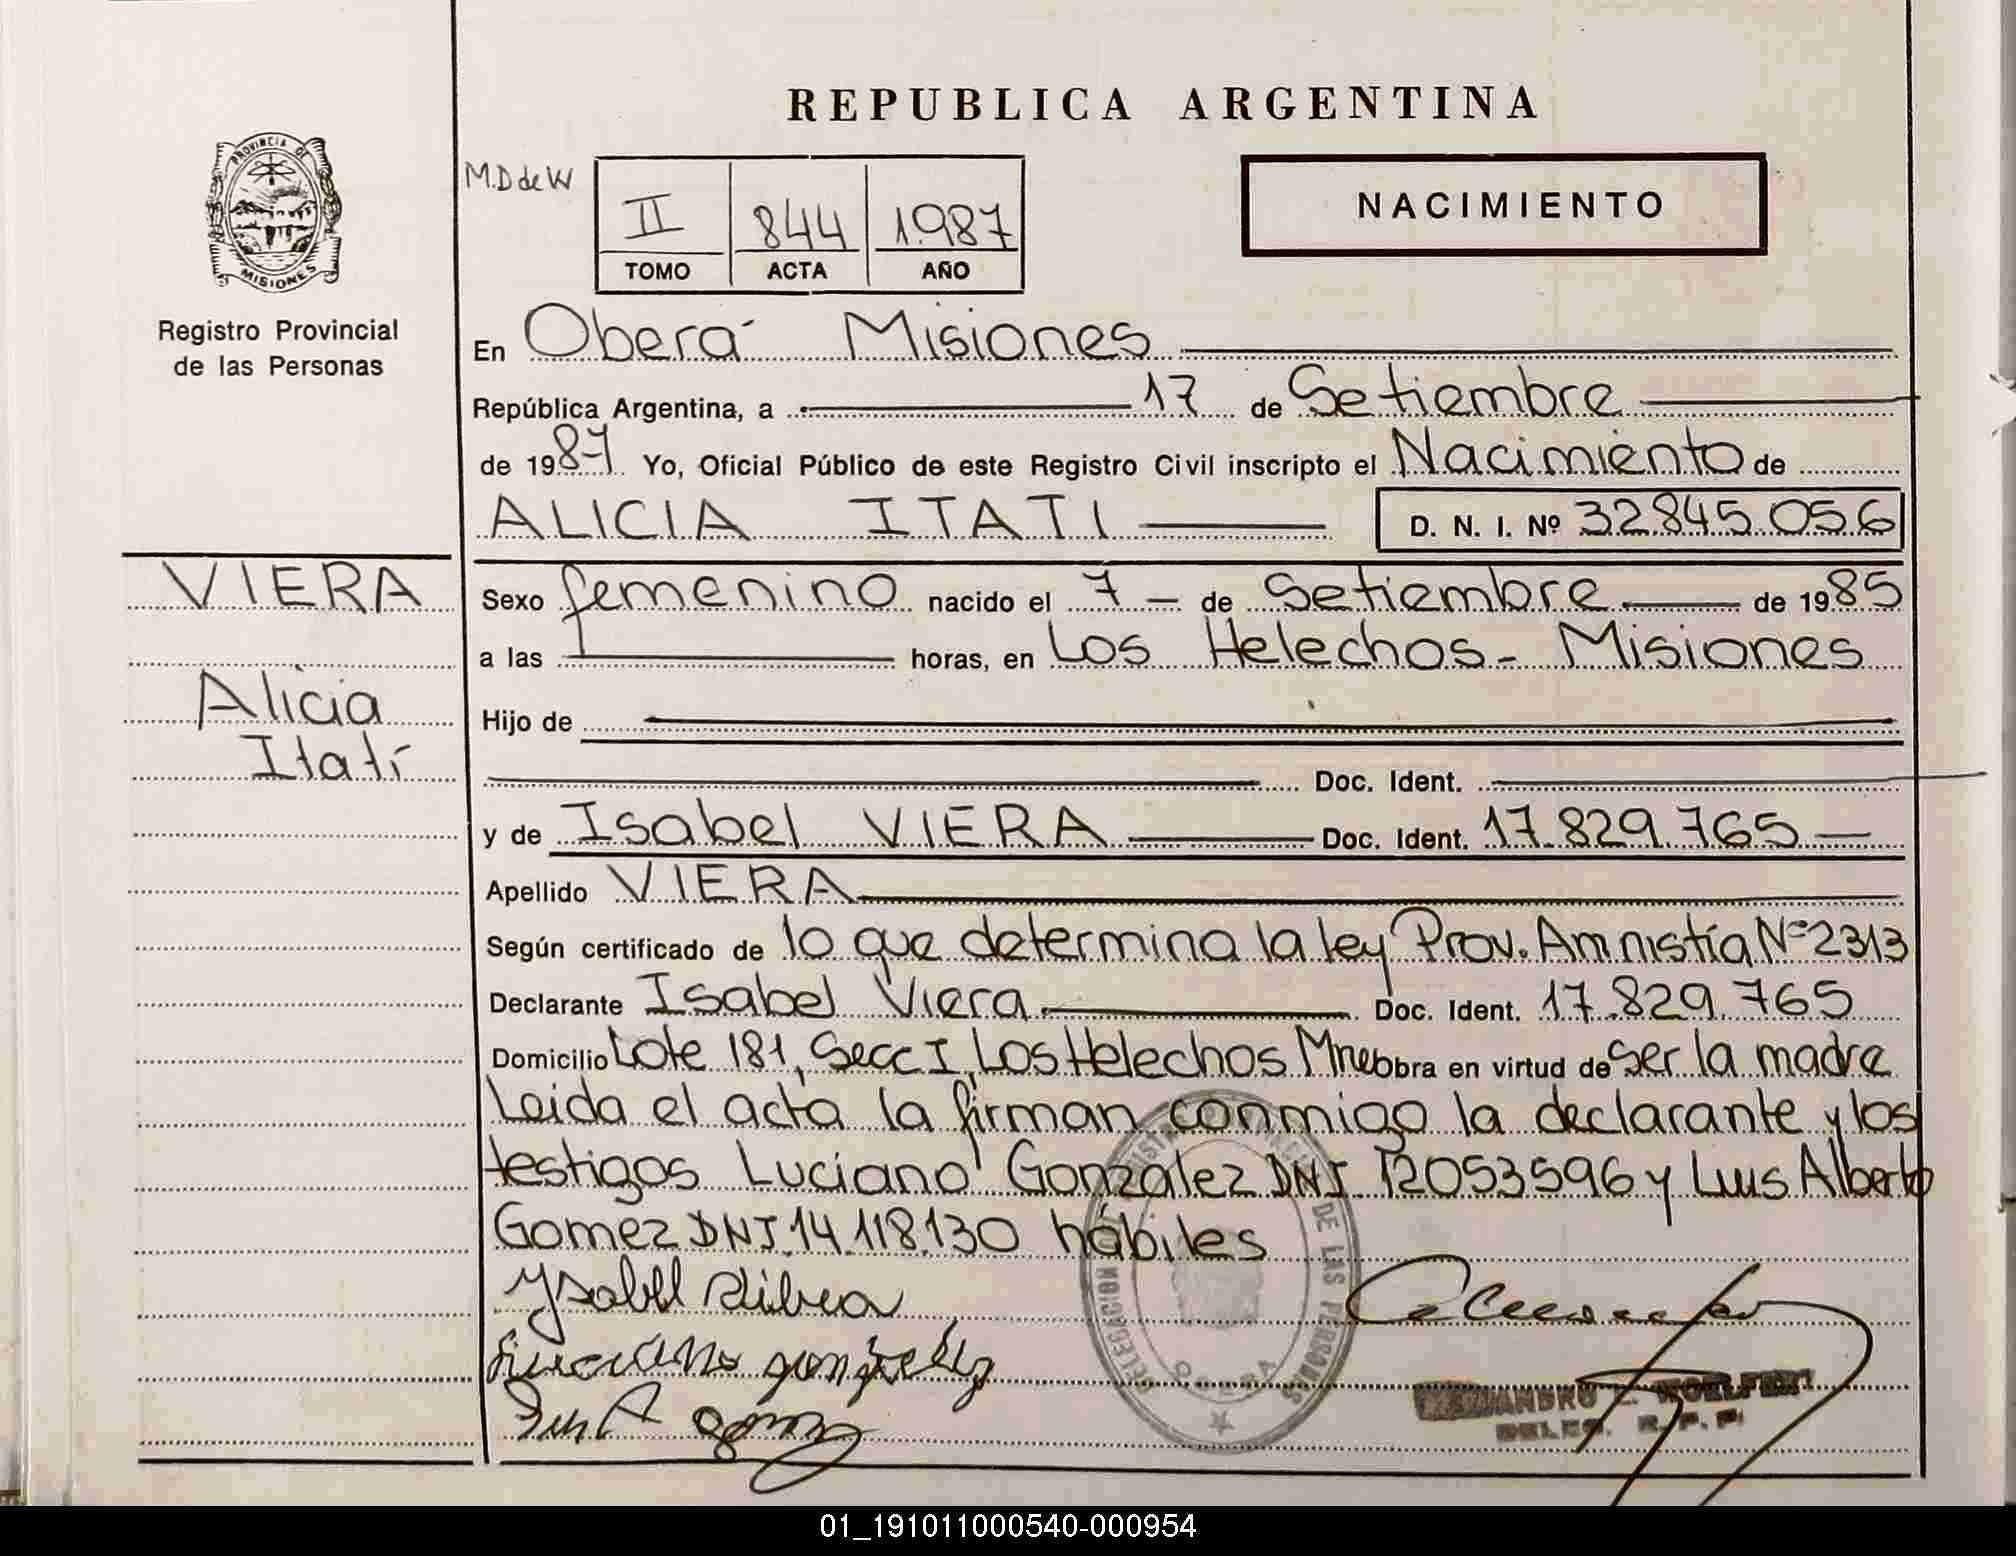 REPUBLICA ARGENTINA
PROVINCIA DE
MISIONES
Registro Provincial
de las Personas
M.D de W
II 844 1.987
TOMO ACTA AÑO
NACIMIENTO
En Oberá Misiones
República Argentina, a 17 de Setiembre
de 1987 Yo, Oficial Público de este Registro Civil inscripto el Nacimiento de
ALICIA ITATI D. N. I. Nº 32.845.056
VIERA
Alicia
Itatí
Sexo femenino nacido el 7 - de Setiembre de 1985
a las horas, en Los Helechos - Misiones
Hijo de
Doc. Ident.
y de Isabel VIERA Doc. Ident. 17.829.765
Apellido VIERA
Según certificado de lo que determina la ley Prov. Amnistía Nº 2313
Declarante Isabel Viera Doc. Ident. 17.829.765
Domicilio Lote 181, Secc I, Los Helechos Mnes obra en virtud de ser la madre
Leida el acta la firman conmigo la declarante y los
testigos Luciano Gonzalez DNI 12053596 y Luis Alberto
Gomez DNI 14.118.130 hábiles
Ysabel
gonzalez
DELEGACION DE LAS PERSONAS
OBERA
DELEG. R. P. P.
01_191011000540-000954